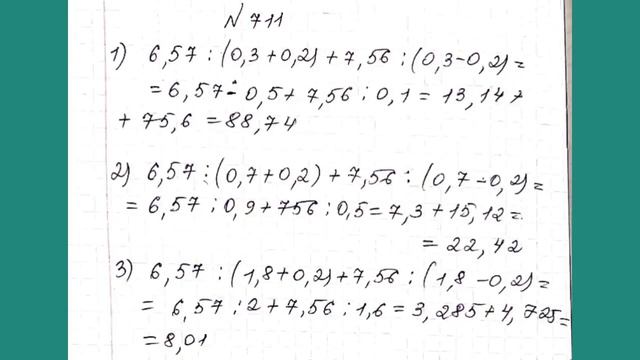 N 711
1) 6,57 : (0,3 + 0,2) + 7,56 : (0,3 - 0,2) =
= 6,57 : 0,5 + 7,56 : 0,1 = 13,14 +
+ 75,6 = 88,74
2) 6,57 : (0,7 + 0,2) + 7,56 : (0,7 - 0,2) =
= 6,57 : 0,9 + 756 : 0,5 = 7,3 + 15,12 =
= 22,42
3) 6,57 : (1,8 + 0,2) + 7,56 : (1,8 - 0,2) =
= 6,57 : 2 + 7,56 : 1,6 = 3,285 + 4,725 =
= 8,01